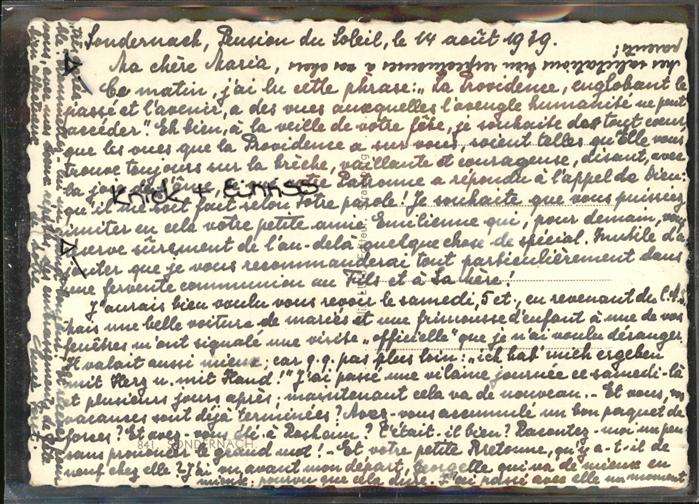 Sondernach, Pension du Soleil, le 14 août 1939.
Ma chère Maria,
Ce matin, j'ai lu cette phrase: „La Providence, englobant le
passé et l'avenir, a des vues auxquelles l'aveugle humanité ne peut
accéder." Eh bien, à la veille de votre fête, je souhaite de tout coeur
que les vues que la Providence a sur vous, soient telles qu'elle vous
trouve toujours sur la brèche, vaillante et courageuse, disant, avec
la joie Patronne a répondu à l'appel de Dieu:
Knick + Einriss
qu'il me soit fait selon Votre parole! Je souhaite que vous puissiez
imiter en cela votre petite amie Emilienne qui, pour demain, vous
réserve sûrement de l'au-delà quelque chose de spécial. Inutile d'a-
jouter que je vous recommanderai tout particulièrement dans
une fervente communion au Fils et à Sa Mère!
J'aurais bien voulu vous revoir le samedi, 5 et, en revenant de
mais une belle voiture de mariés et une frimousse d'enfant à une de vos
fenêtres m'ont signalé une visite „officielle" que je n'ai voulu déranger.
Il valait aussi mieux, car q.q. pas plus loin: „ich hab' mich ergeben
mit Herz u. mit Hand!" J'ai passé une vilaine journée ce samedi-là
et plusieurs jours après; maintenant cela va de nouveau. - Et vous, vos
vacances sont déjà terminées? Avez-vous accumulé un bon paquet de
forces? Et avez-vous été à Rosheim? C'était-il bien? Racontez-moi un peu
sans prononcer le grand mot! - Et votre petite Bretonne, qu'y a-t-il de
841 SONDERNACH
neuf chez elle? J'ai vu avant mon départ, Georgette qui va de mieux en
mieux, pourvu que cela dure. J'ai passé avec elle un moment
Mes salutations bien respectueuses à vos chers
parents!